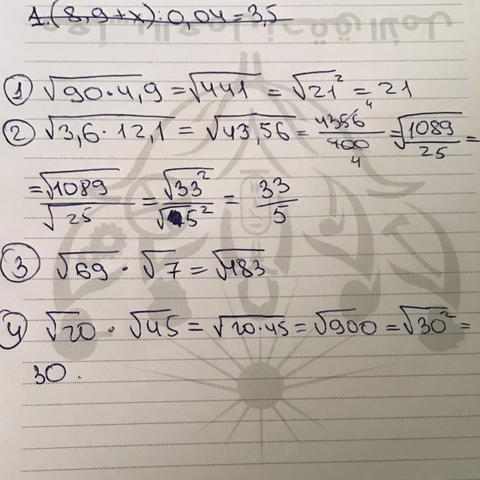 1. (8,9+x):0,04=3,5
① √90·4,9 = √441 = √21² = 21
② √3,6·12,1 = √43,56 = 4356/400 = √1089/25 =
= √1089/√25 = √33²/√5² = 33/5
③ √69 · √7 = √483
④ √20 · √45 = √20·45 = √900 = √30² =
30.